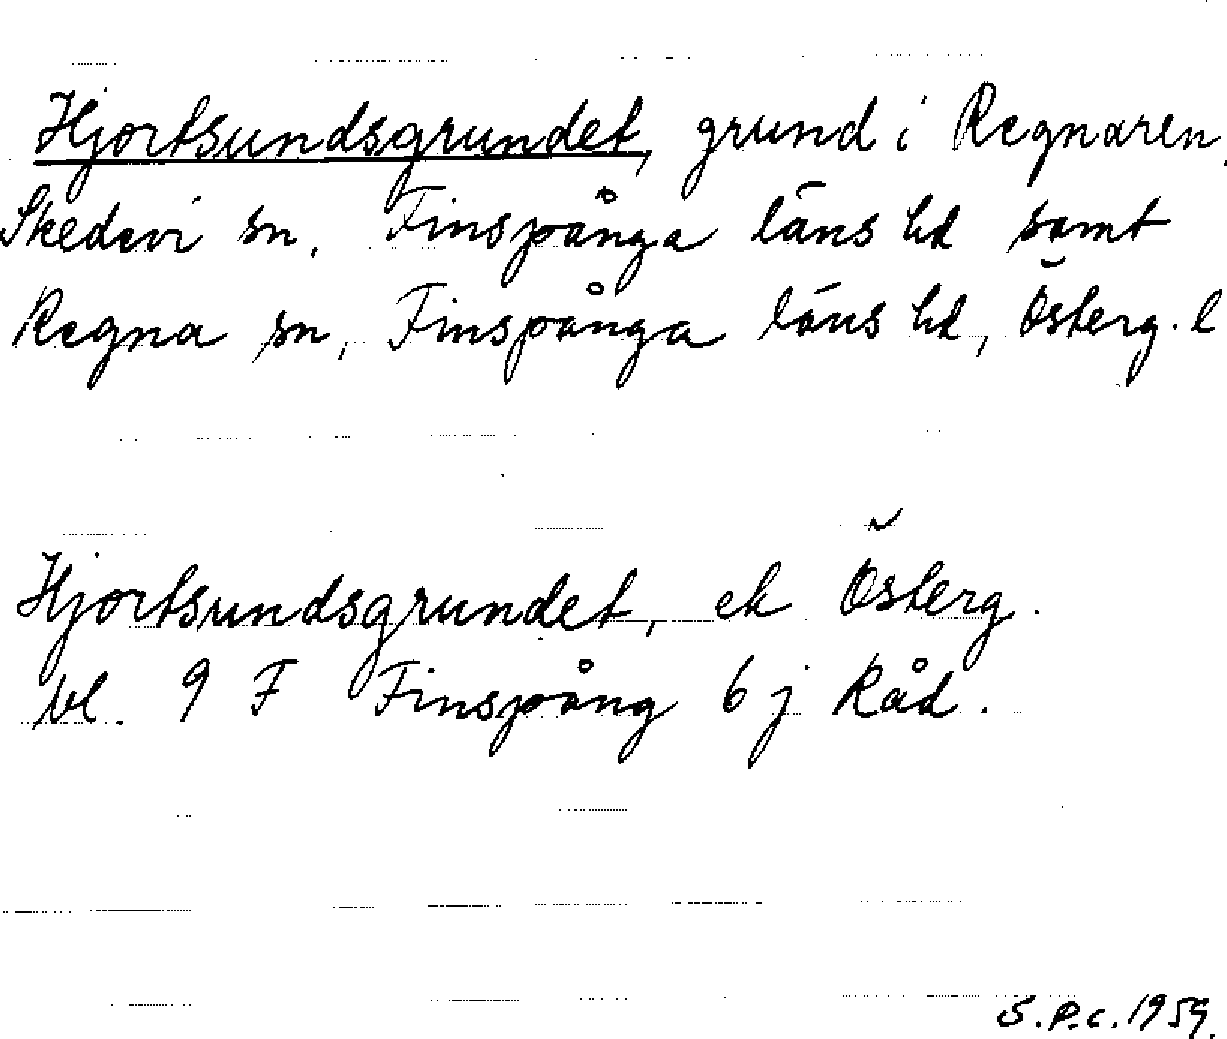 Hjortsundsgrundet, grund i Regnaren,
Skedevi sn, Finspånga läns hd samt
Regna sn, Finspånga läns hd, Österg. l
Hjortsundsgrundet, ek Österg.
bl. 9 F Finspång 6 j Råd.
S.P.C. 1959.